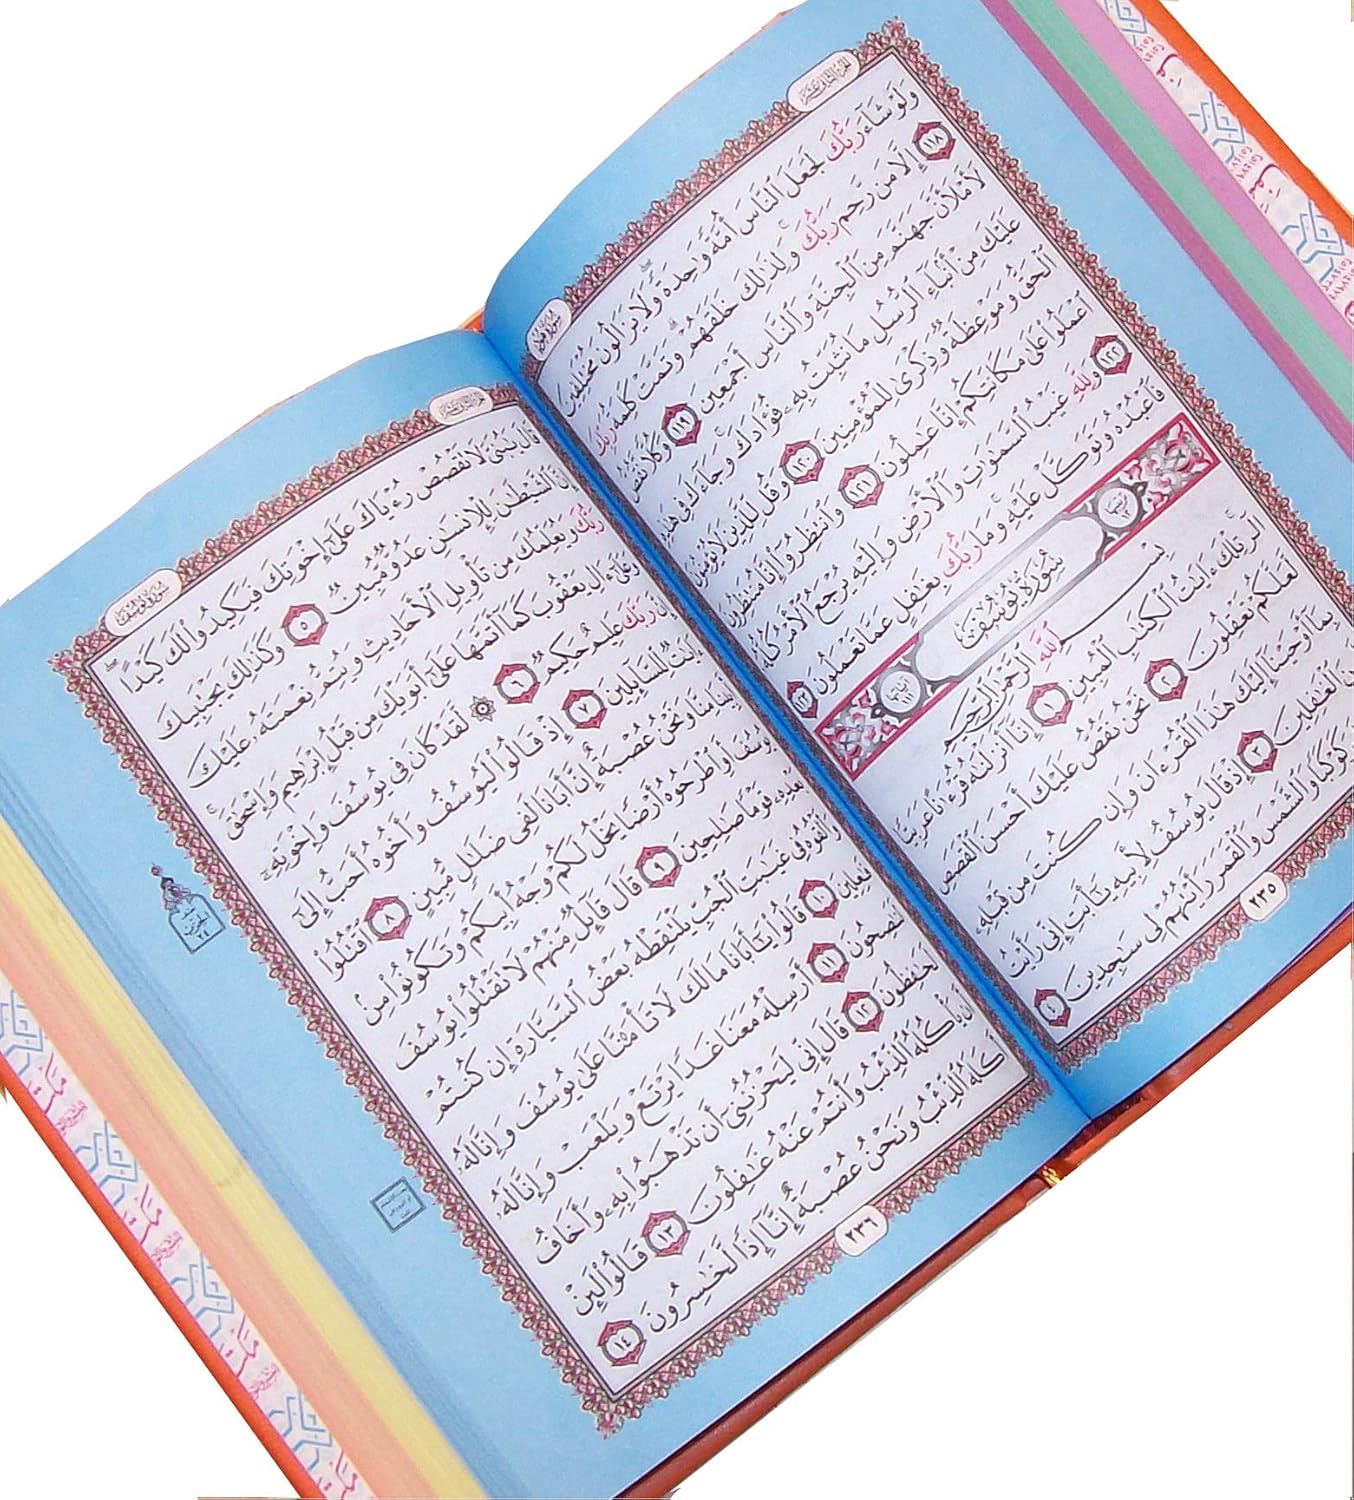 الجزء الثاني عشر
سورة هود
وَلَوْ شَآءَ رَبُّكَ لَجَعَلَ ٱلنَّاسَ أُمَّةً وَٰحِدَةً وَلَا يَزَالُونَ مُخْتَلِفِينَ
١١٨ إِلَّا مَن رَّحِمَ رَبُّكَ وَلِذَٰلِكَ خَلَقَهُمْ وَتَمَّتْ كَلِمَةُ رَبِّكَ
لَأَمْلَأَنَّ جَهَنَّمَ مِنَ ٱلْجِنَّةِ وَٱلنَّاسِ أَجْمَعِينَ ١١٩ وَكُلًّا نَّقُصُّ
عَلَيْكَ مِنْ أَنۢبَآءِ ٱلرُّسُلِ مَا نُثَبِّتُ بِهِۦ فُؤَادَكَ وَجَآءَكَ فِى هَٰذِهِ
ٱلْحَقُّ وَمَوْعِظَةٌ وَذِكْرَىٰ لِلْمُؤْمِنِينَ ١٢٠ وَقُل لِّلَّذِينَ لَا يُؤْمِنُونَ
ٱعْمَلُوا۟ عَلَىٰ مَكَانَتِكُمْ إِنَّا عَٰمِلُونَ ١٢١ وَٱنتَظِرُوٓا۟ إِنَّا مُنتَظِرُونَ
١٢٢ وَلِلَّهِ غَيْبُ ٱلسَّمَٰوَٰتِ وَٱلْأَرْضِ وَإِلَيْهِ يُرْجَعُ ٱلْأَمْرُ كُلُّهُۥ
فَٱعْبُدْهُ وَتَوَكَّلْ عَلَيْهِ وَمَا رَبُّكَ بِغَٰفِلٍ عَمَّا تَعْمَلُونَ ١٢٣
ترتيبها ١٢ سُورَةُ يُوسُفَ آياتها ١١١
بِسْمِ ٱللَّهِ ٱلرَّحْمَٰنِ ٱلرَّحِيمِ
الٓر تِلْكَ ءَايَٰتُ ٱلْكِتَٰبِ ٱلْمُبِينِ ١ إِنَّآ أَنزَلْنَٰهُ قُرْءَٰنًا عَرَبِيًّا
لَّعَلَّكُمْ تَعْقِلُونَ ٢ نَحْنُ نَقُصُّ عَلَيْكَ أَحْسَنَ ٱلْقَصَصِ
بِمَآ أَوْحَيْنَآ إِلَيْكَ هَٰذَا ٱلْقُرْءَانَ وَإِن كُنتَ مِن قَبْلِهِۦ
ٱلْغَٰفِلِينَ ٣ إِذْ قَالَ يُوسُفُ لِأَبِيهِ يَٰٓأَبَتِ إِنِّى رَأَيْتُ
كَوْكَبًا وَٱلشَّمْسَ وَٱلْقَمَرَ رَأَيْتُهُمْ لِى سَٰجِدِينَ ٤
٢٣٥
الجزء الثاني عشر
سورة يوسف
قَالَ يَٰبُنَىَّ لَا تَقْصُصْ رُءْيَاكَ عَلَىٰٓ إِخْوَتِكَ فَيَكِيدُوا۟ لَكَ كَيْدًا
إِنَّ ٱلشَّيْطَٰنَ لِلْإِنسَٰنِ عَدُوٌّ مُّبِينٌ ٥ وَكَذَٰلِكَ يَجْتَبِيكَ
رَبُّكَ وَيُعَلِّمُكَ مِن تَأْوِيلِ ٱلْأَحَادِيثِ وَيُتِمُّ نِعْمَتَهُۥ عَلَيْكَ
وَعَلَىٰٓ ءَالِ يَعْقُوبَ كَمَآ أَتَمَّهَا عَلَىٰٓ أَبَوَيْكَ مِن قَبْلُ إِبْرَٰهِيمَ وَإِسْحَٰقَ
إِنَّ رَبَّكَ عَلِيمٌ حَكِيمٌ ٦ ۞ لَّقَدْ كَانَ فِى يُوسُفَ وَإِخْوَتِهِۦٓ
ءَايَٰتٌ لِّلسَّآئِلِينَ ٧ إِذْ قَالُوا۟ لَيُوسُفُ وَأَخُوهُ أَحَبُّ إِلَىٰٓ
أَبِينَا مِنَّا وَنَحْنُ عُصْبَةٌ إِنَّ أَبَانَا لَفِى ضَلَٰلٍ مُّبِينٍ ٨ ٱقْتُلُوا۟
يُوسُفَ أَوِ ٱطْرَحُوهُ أَرْضًا يَخْلُ لَكُمْ وَجْهُ أَبِيكُمْ وَتَكُونُوا۟ مِنۢ
بَعْدِهِۦ قَوْمًا صَٰلِحِينَ ٩ قَالَ قَآئِلٌ مِّنْهُمْ لَا تَقْتُلُوا۟ يُوسُفَ
وَأَلْقُوهُ فِى غَيَٰبَتِ ٱلْجُبِّ يَلْتَقِطْهُ بَعْضُ ٱلسَّيَّارَةِ إِن كُنتُمْ
فَٰعِلِينَ ١٠ قَالُوا۟ يَٰٓأَبَانَا مَا لَكَ لَا تَأْمَ۫نَّا عَلَىٰ يُوسُفَ وَإِنَّا لَهُۥ
لَنَٰصِحُونَ ١١ أَرْسِلْهُ مَعَنَا غَدًا يَرْتَعْ وَيَلْعَبْ وَإِنَّا لَهُۥ
لَحَٰفِظُونَ ١٢ قَالَ إِنِّى لَيَحْزُنُنِىٓ أَن تَذْهَبُوا۟ بِهِۦ وَأَخَافُ
أَن يَأْكُلَهُ ٱلذِّئْبُ وَأَنتُمْ عَنْهُ غَٰفِلُونَ ١٣ قَالُوا۟ لَئِنْ
أَكَلَهُ ٱلذِّئْبُ وَنَحْنُ عُصْبَةٌ إِنَّآ إِذًا لَّخَٰسِرُونَ ١٤
٢٣٦
الحزب
٢٤